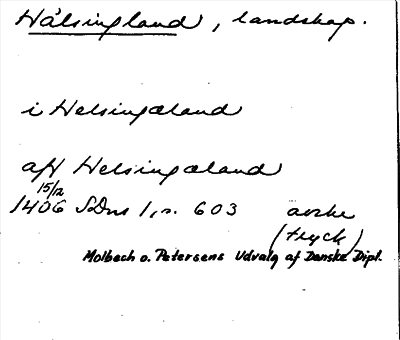 Hälsingland, landskap.
i Helsingæland
aff Helsingæland
15/12
1406 SDns 1, s. 603 avskr
(tryck)
Molbech o. Petersens Udvalg af Danske Dipl.